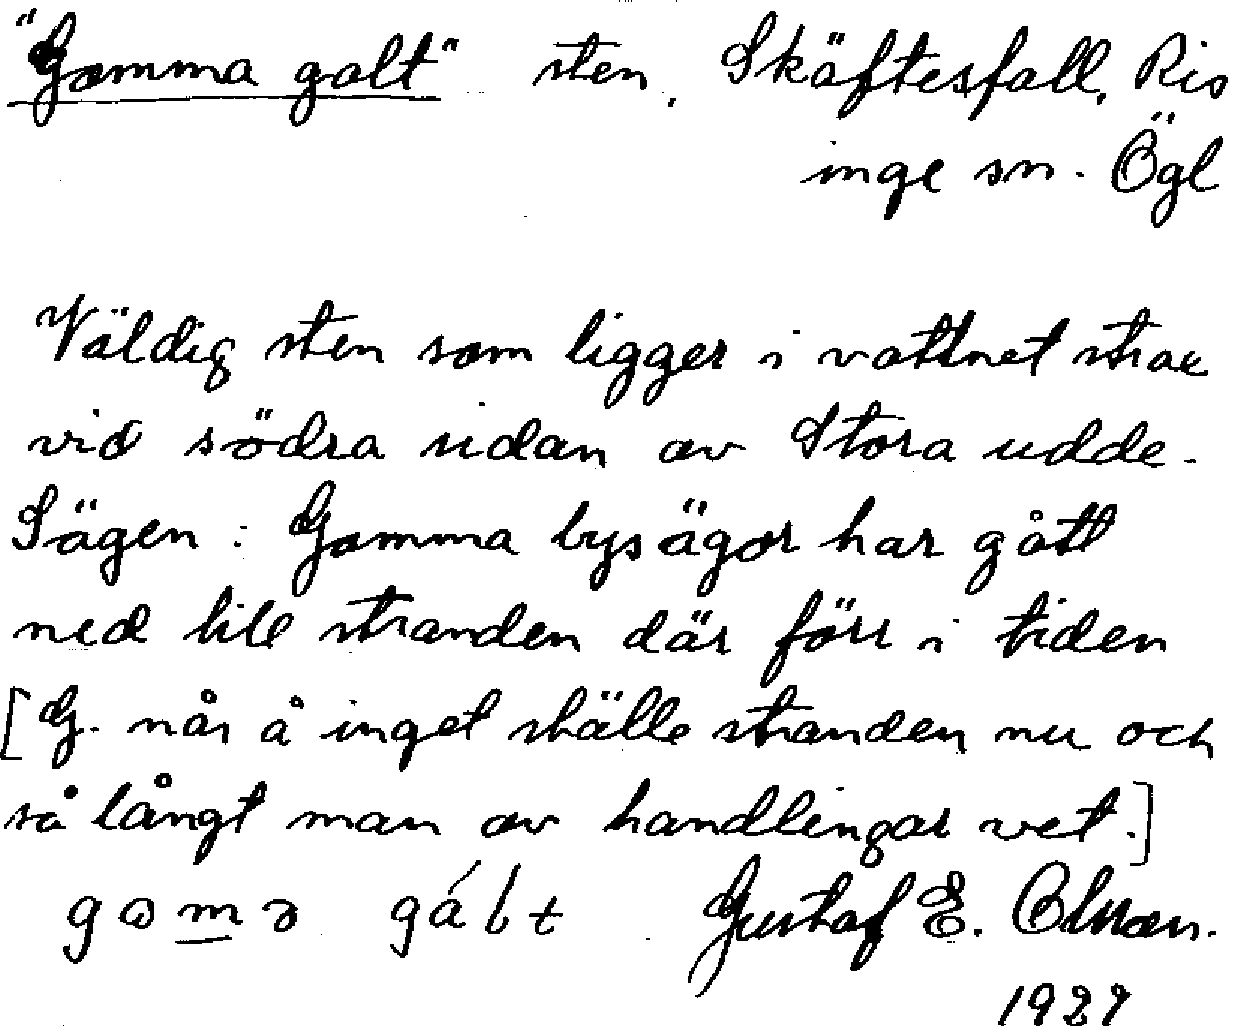 "Gamma galt" sten, Skäftesfall, Ris
inge sn. Ögl
Väldig sten som ligger i vattnet strax
vid södra sidan av Stora udde.
Sägen: Gamma bysägor har gått
ned till stranden där förr i tiden
[G. når å inget ställe stranden nu och
så långt man av handlingar vet.]
gamə gált Gustaf E. Olsson.
1927